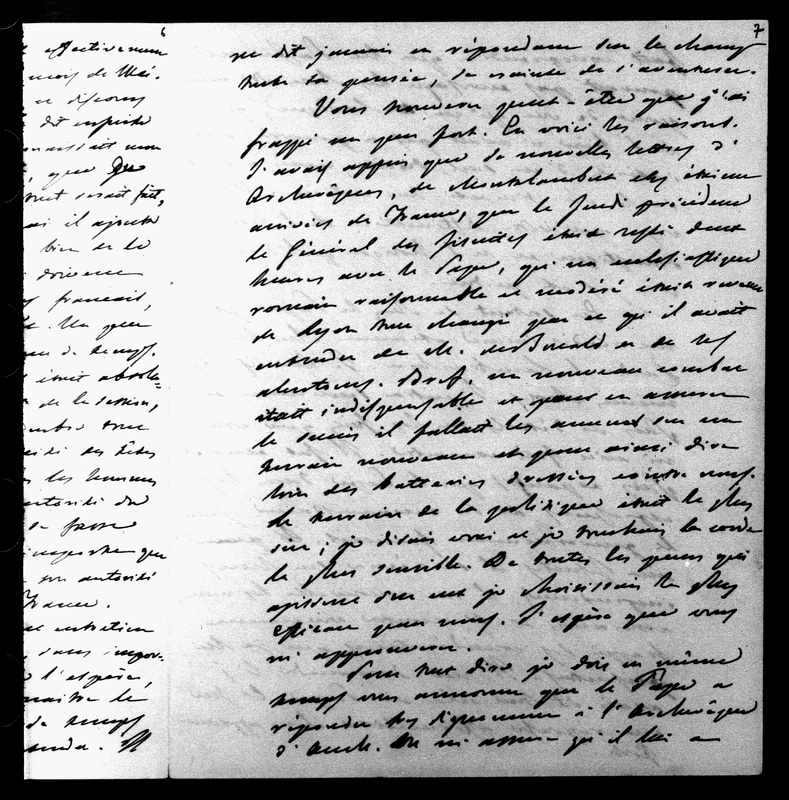 6
effectivement
mois de Mai.
ce discours
dit ensuite
que
serait fait,
il ajoute
bien de la
doivent
français,
Un peu
de temps.
était absolu-
de la session,
des
les hommes
autorité du
la force
importe que
son autorité
France.
entretien
sans impor-
l'espère,
connaître le
de temps
7
ne dit jamais en répondant sur le champ
toute sa pensée, de crainte de s'aventurer.
Vous trouverez peut-être que j'ai
frappé un peu fort. En voici les raisons.
J'avais appris que de nouvelles lettres d'
Archevêques, de Montalembert etc étaient
arrivées de France, que le Jeudi précédent
le Général des Jésuites était resté deux
heures avec le Pape, qu'un ecclésiastique
romain raisonnable et modéré était revenu
de Lyon tout changé par ce qu'il avait
entendu de M. de Bonald et de ses
alentours. Bref, un nouveau combat
était indispensable et pour en assurer
le succès il fallait les amener sur un
terrain nouveau et pour ainsi dire
loin des batteries dressées contre nous.
Le terrain de la politique était le plus
sûr; je disais vrai et je touchais la corde
la plus sensible. De toutes les peurs qui
agissent sur eux je choisissais la plus
efficace pour nous. J'espère que vous
m'approuverez.
Pour tout dire je dois en même
temps vous annoncer que le Pape a
répondu très dignement à l'Archevêque
d'Auch. On m'assure qu'il lui a